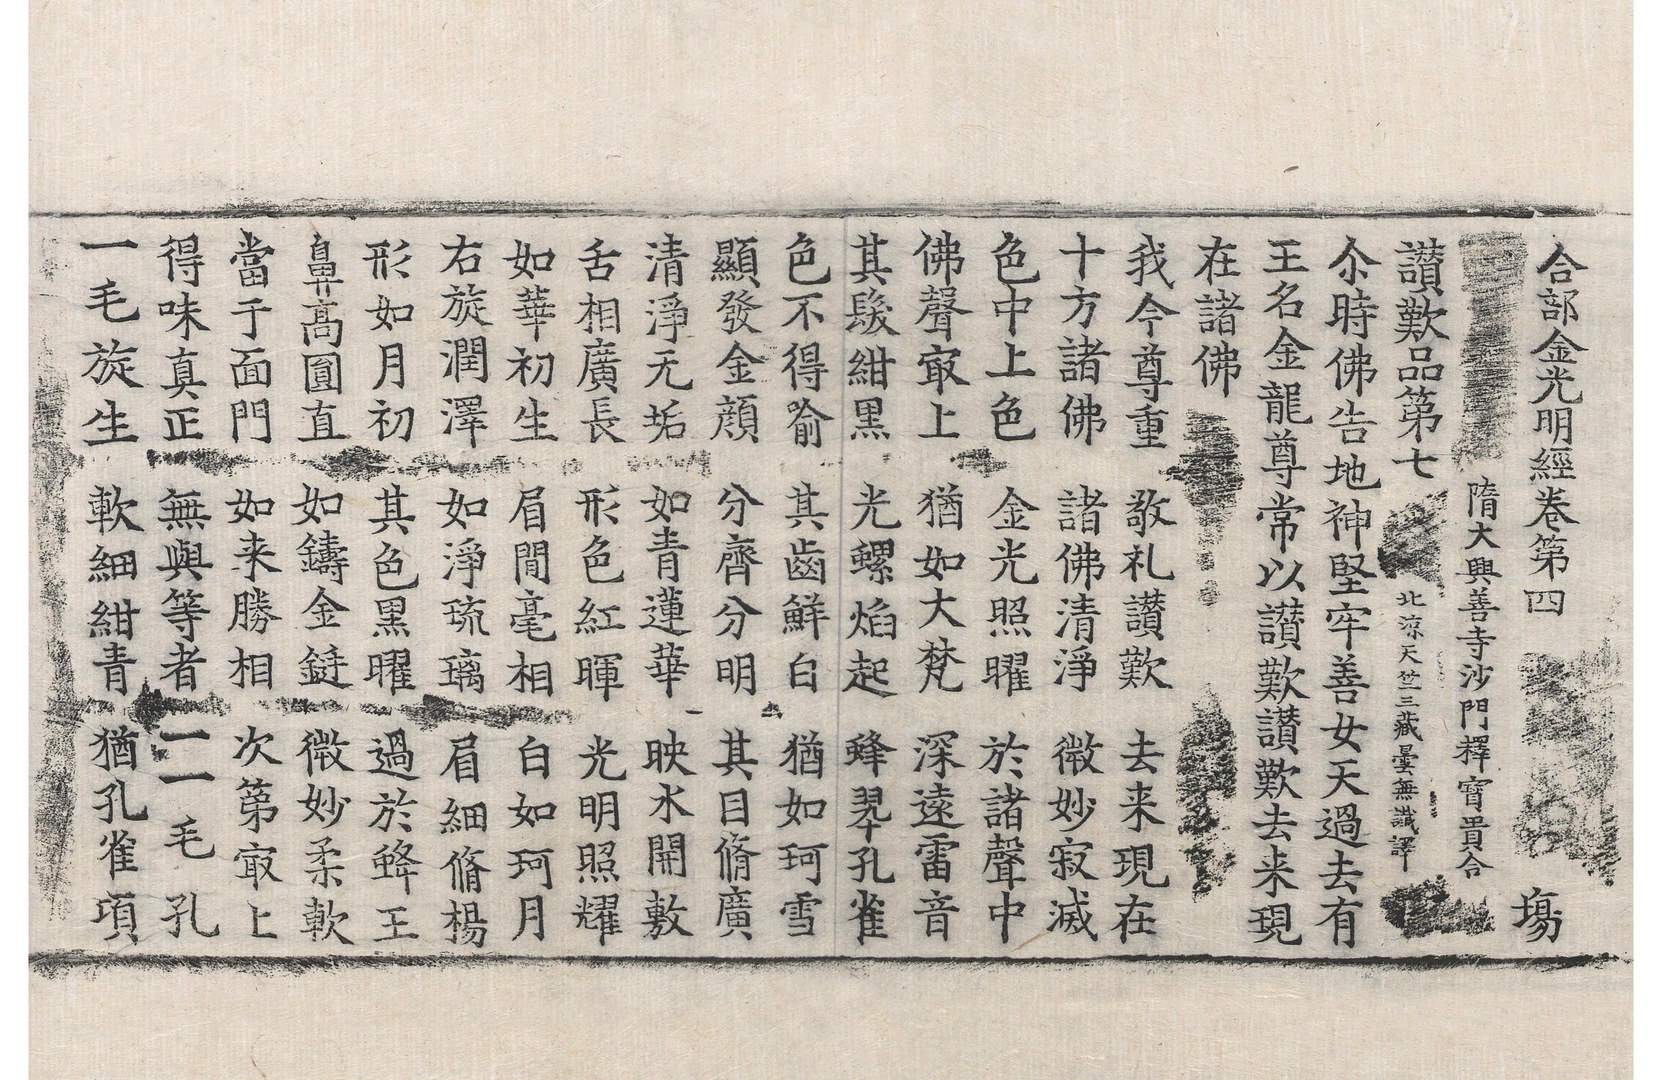 合部金光明經卷第四 塲
隋大興善寺沙門釋寶貴合
讃歎品第七 北涼天竺三藏曇無讖譯
尒時佛告地神堅牢善女天過去有
王名金龍尊常以讃歎讃歎去来現
在諸佛
我今尊重 敬礼讃歎 去来現在
十方諸佛 諸佛清淨 微妙寂滅
色中上色 金光照曜 於諸聲中
佛聲㝡上 猶如大梵 深遠雷音
其髮紺黑 光螺焰起 蜂翠孔雀
色不得喻 其齒鮮白 猶如珂雪
顯發金顔 分齊分明 其目脩廣
清淨无垢 如青蓮華 映水開敷
舌相廣長 形色紅暉 光明照耀
如華初生 眉間毫相 白如珂月
右旋潤澤 如淨琉璃 眉細脩楊
形如月初 其色黑曜 過於蜂王
鼻高圓直 如鑄金鋌 微妙柔軟
當于面門 如来勝相 次第㝡上
得味真正 無與等者 一一毛孔
一毛旋生 軟細紺青 猶孔雀項